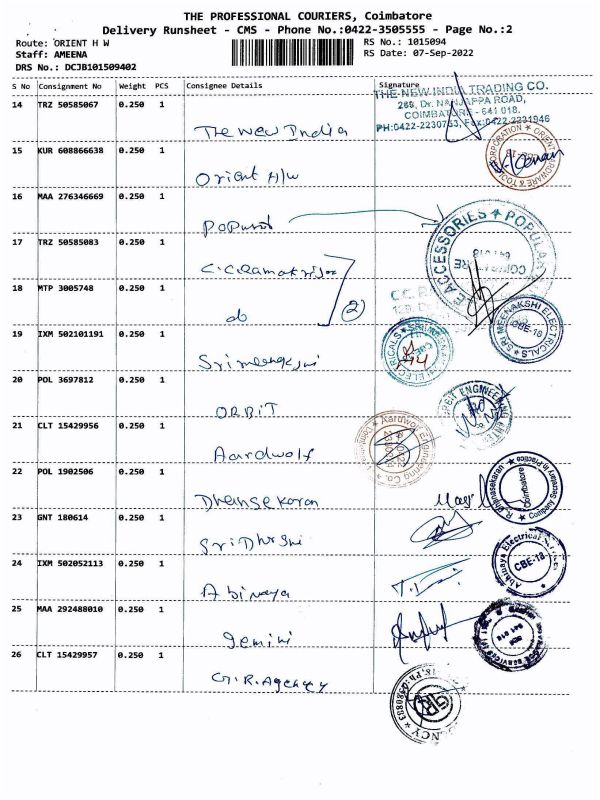 THE PROFESSIONAL COURIERS, Coimbatore
Delivery Runsheet - CMS - Phone No.:0422-3505555 - Page No.:2
Route: ORIENT H W
RS No.: 1015094
Staff: AMEENA
RS Date: 07-Sep-2022
DRS No.: DCJB101509402
S No Consignment No Weight PCS Consignee Details Signature
14 TRZ 50585067 0.250 1
The New India
THE NEW INDIA TRADING CO.
269, Dr. NANJAPPA ROAD,
COIMBATORE - 641 018.
PH:0422-2230753, Fax:0422-2231946
15 KUR 608866638 0.250 1
Orient H/w
16 MAA 276346669 0.250 1
Popular
ACCESSORIES ★ POPULAR
17 TRZ 50585083 0.250 1
C.C.Ramakrisna
18 MTP 3005748 0.250 1
do (2)
SRI MEENAKSHI ELECTRICALS
CBE-18
19 IXM 502101191 0.250 1
Sri meenakshi
SRI MEENAKSHI ELECTRICALS
20 POL 3697812 0.250 1
ORBIT
ORBIT ENGINEERING
21 CLT 15429956 0.250 1
Aardwolf
Aardwolf Engineering Co.
22 POL 1902506 0.250 1
Dhansekaran
Company Secretary in Practice
Coimbatore
23 GNT 180614 0.250 1
Sri Dharshi
24 IXM 502052113 0.250 1
Abinaya
Abhinaya Electrical Services
CBE-18
25 MAA 292488010 0.250 1
Gemini
26 CLT 15429957 0.250 1
G.R.Agency
GRA